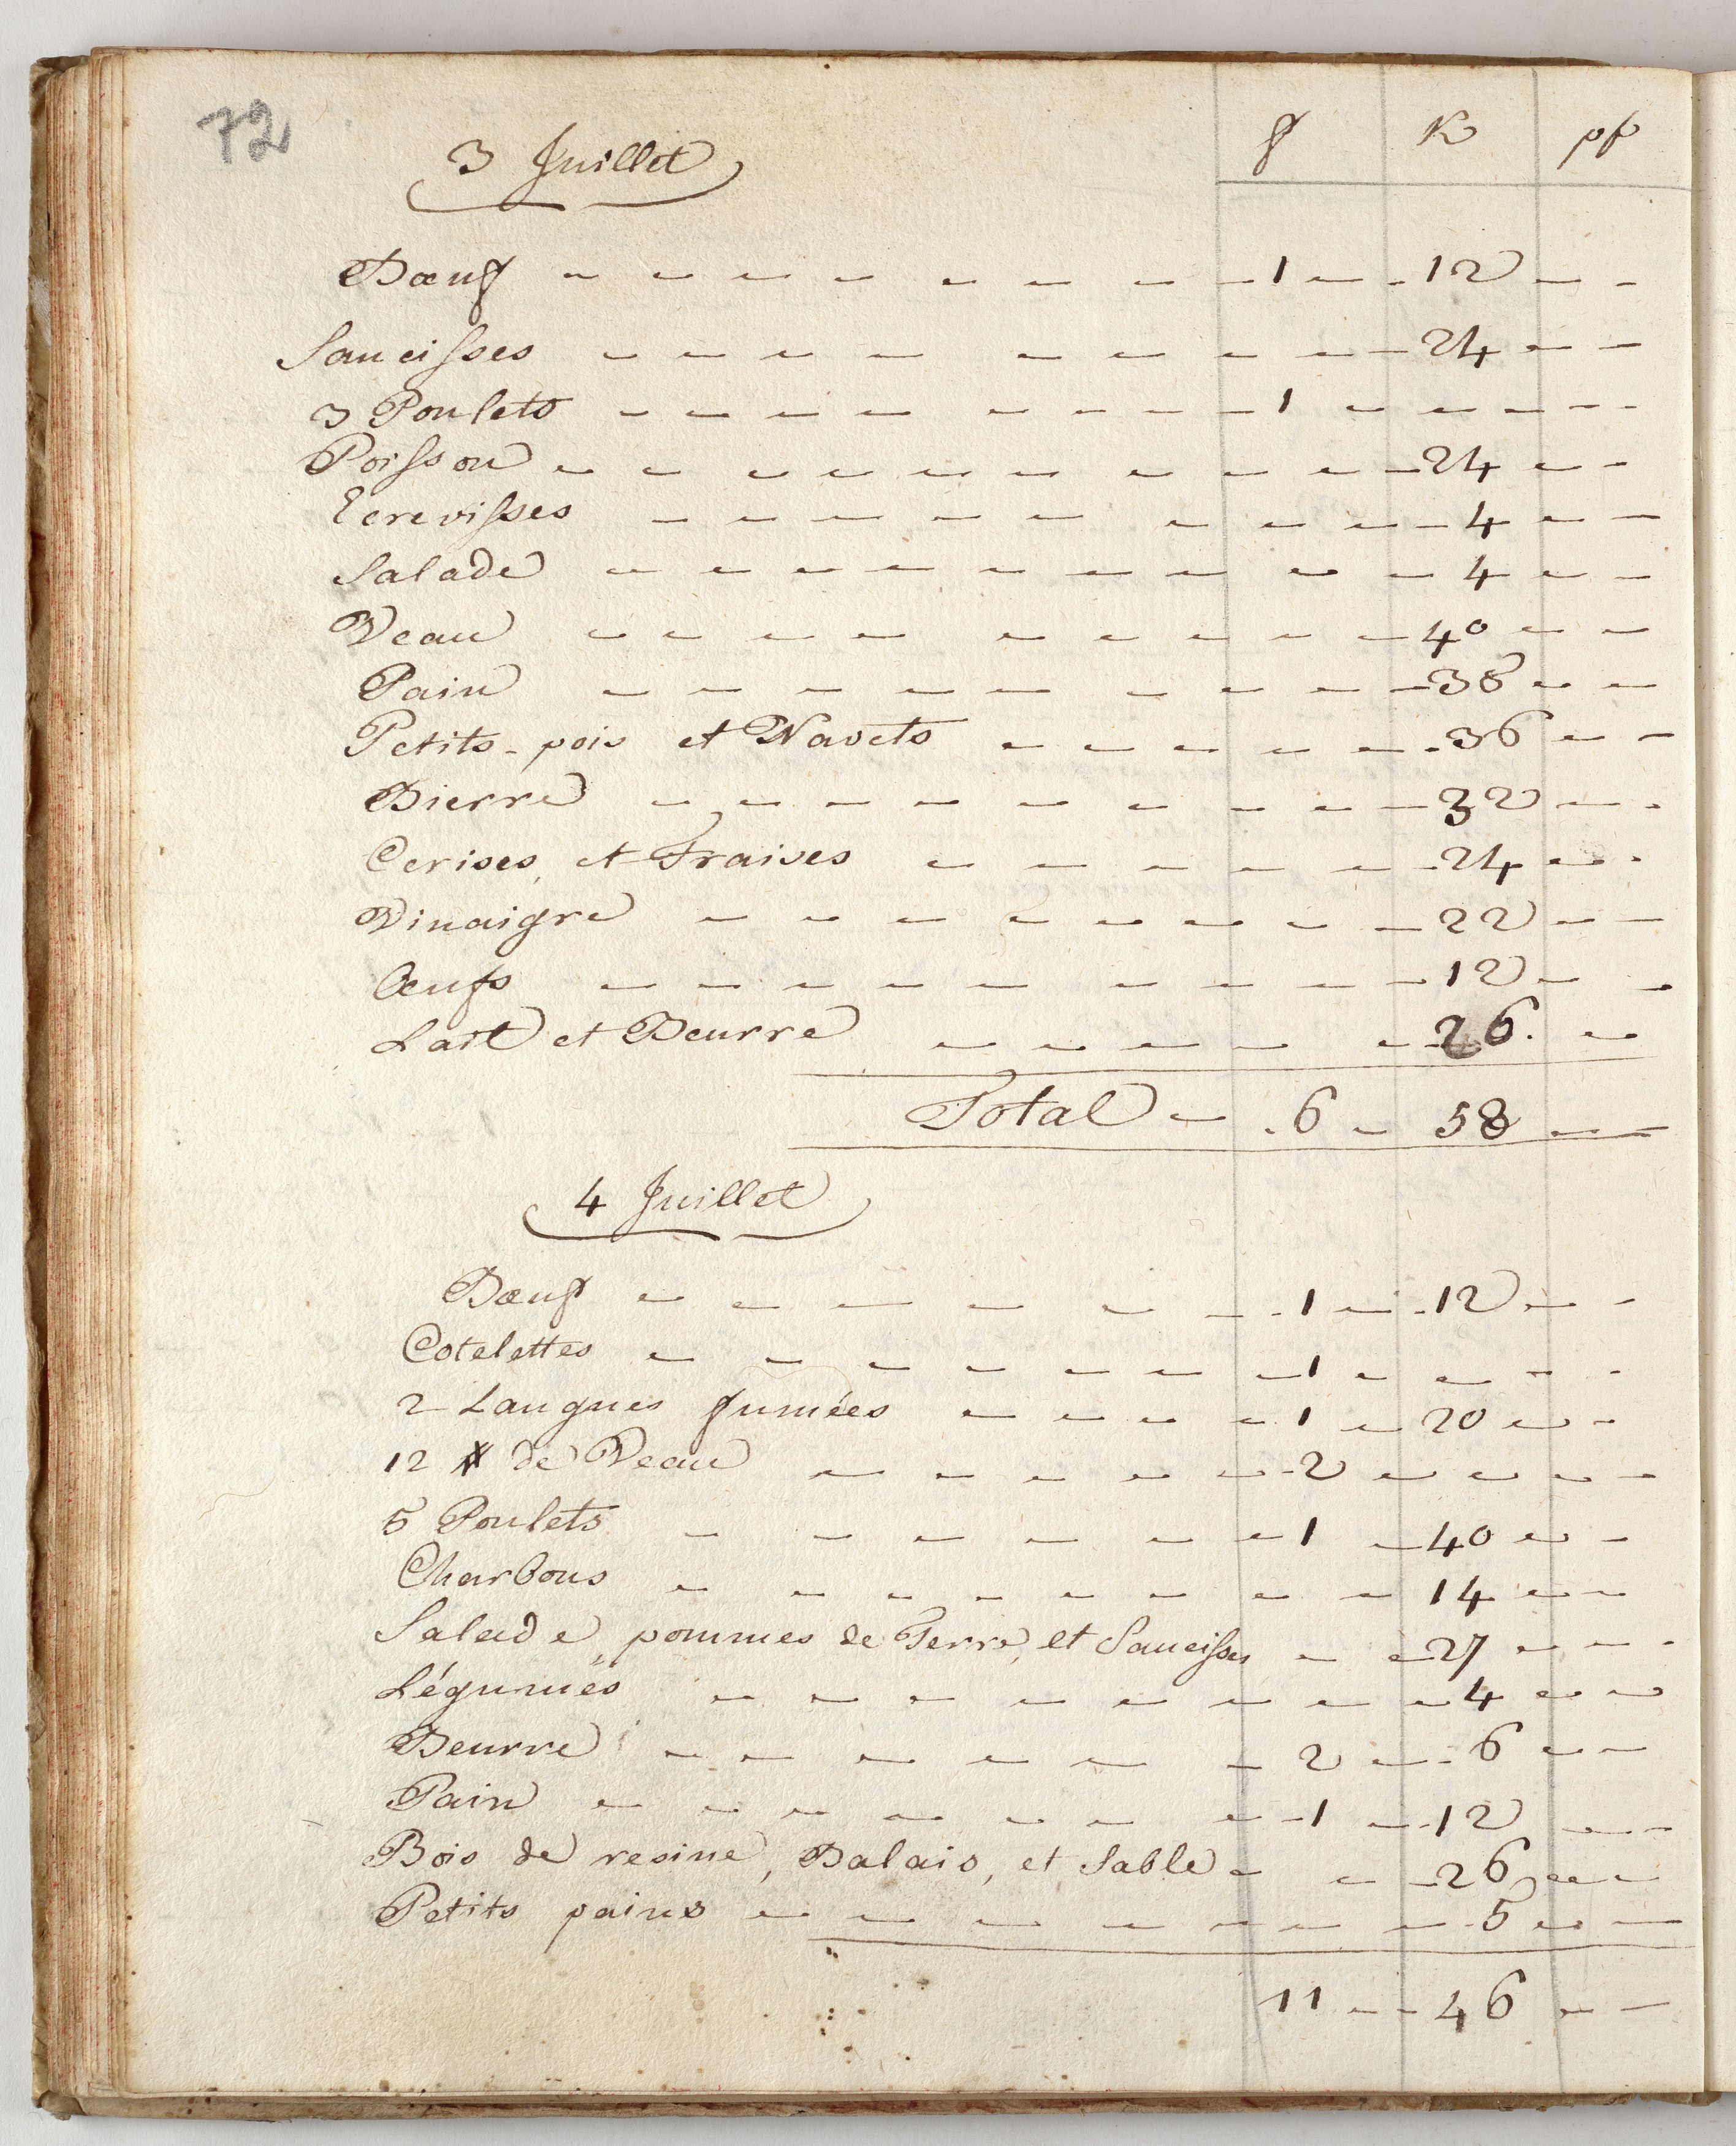 72
3 Juillet
f K pf
Bœuf 1 12
Saucisses 24
3 Poulets 1
Poisson 24
Ecrevisses 4
Salade 4
Veau 40
Pain 38
Petits-pois et Navets 36
Bierre 32
Cerises, et Fraises 24
Vinaigre 22
Œufs 12
Lait et Beurre 26.
Total 6 58
4 Juillet
Bœuf 1 12
Cotelettes 1
2 Langues fumées 1 20
12 ℔ de Veau 2
5 Poulets 1 40
Charbons 14
Salade, pommes de Terre, et Saucisses 27
Légumes 4
Beurre 2 6
Pain 1 12
Bois de resine, Balais, et Sable 26
Petits pains 5
11 46